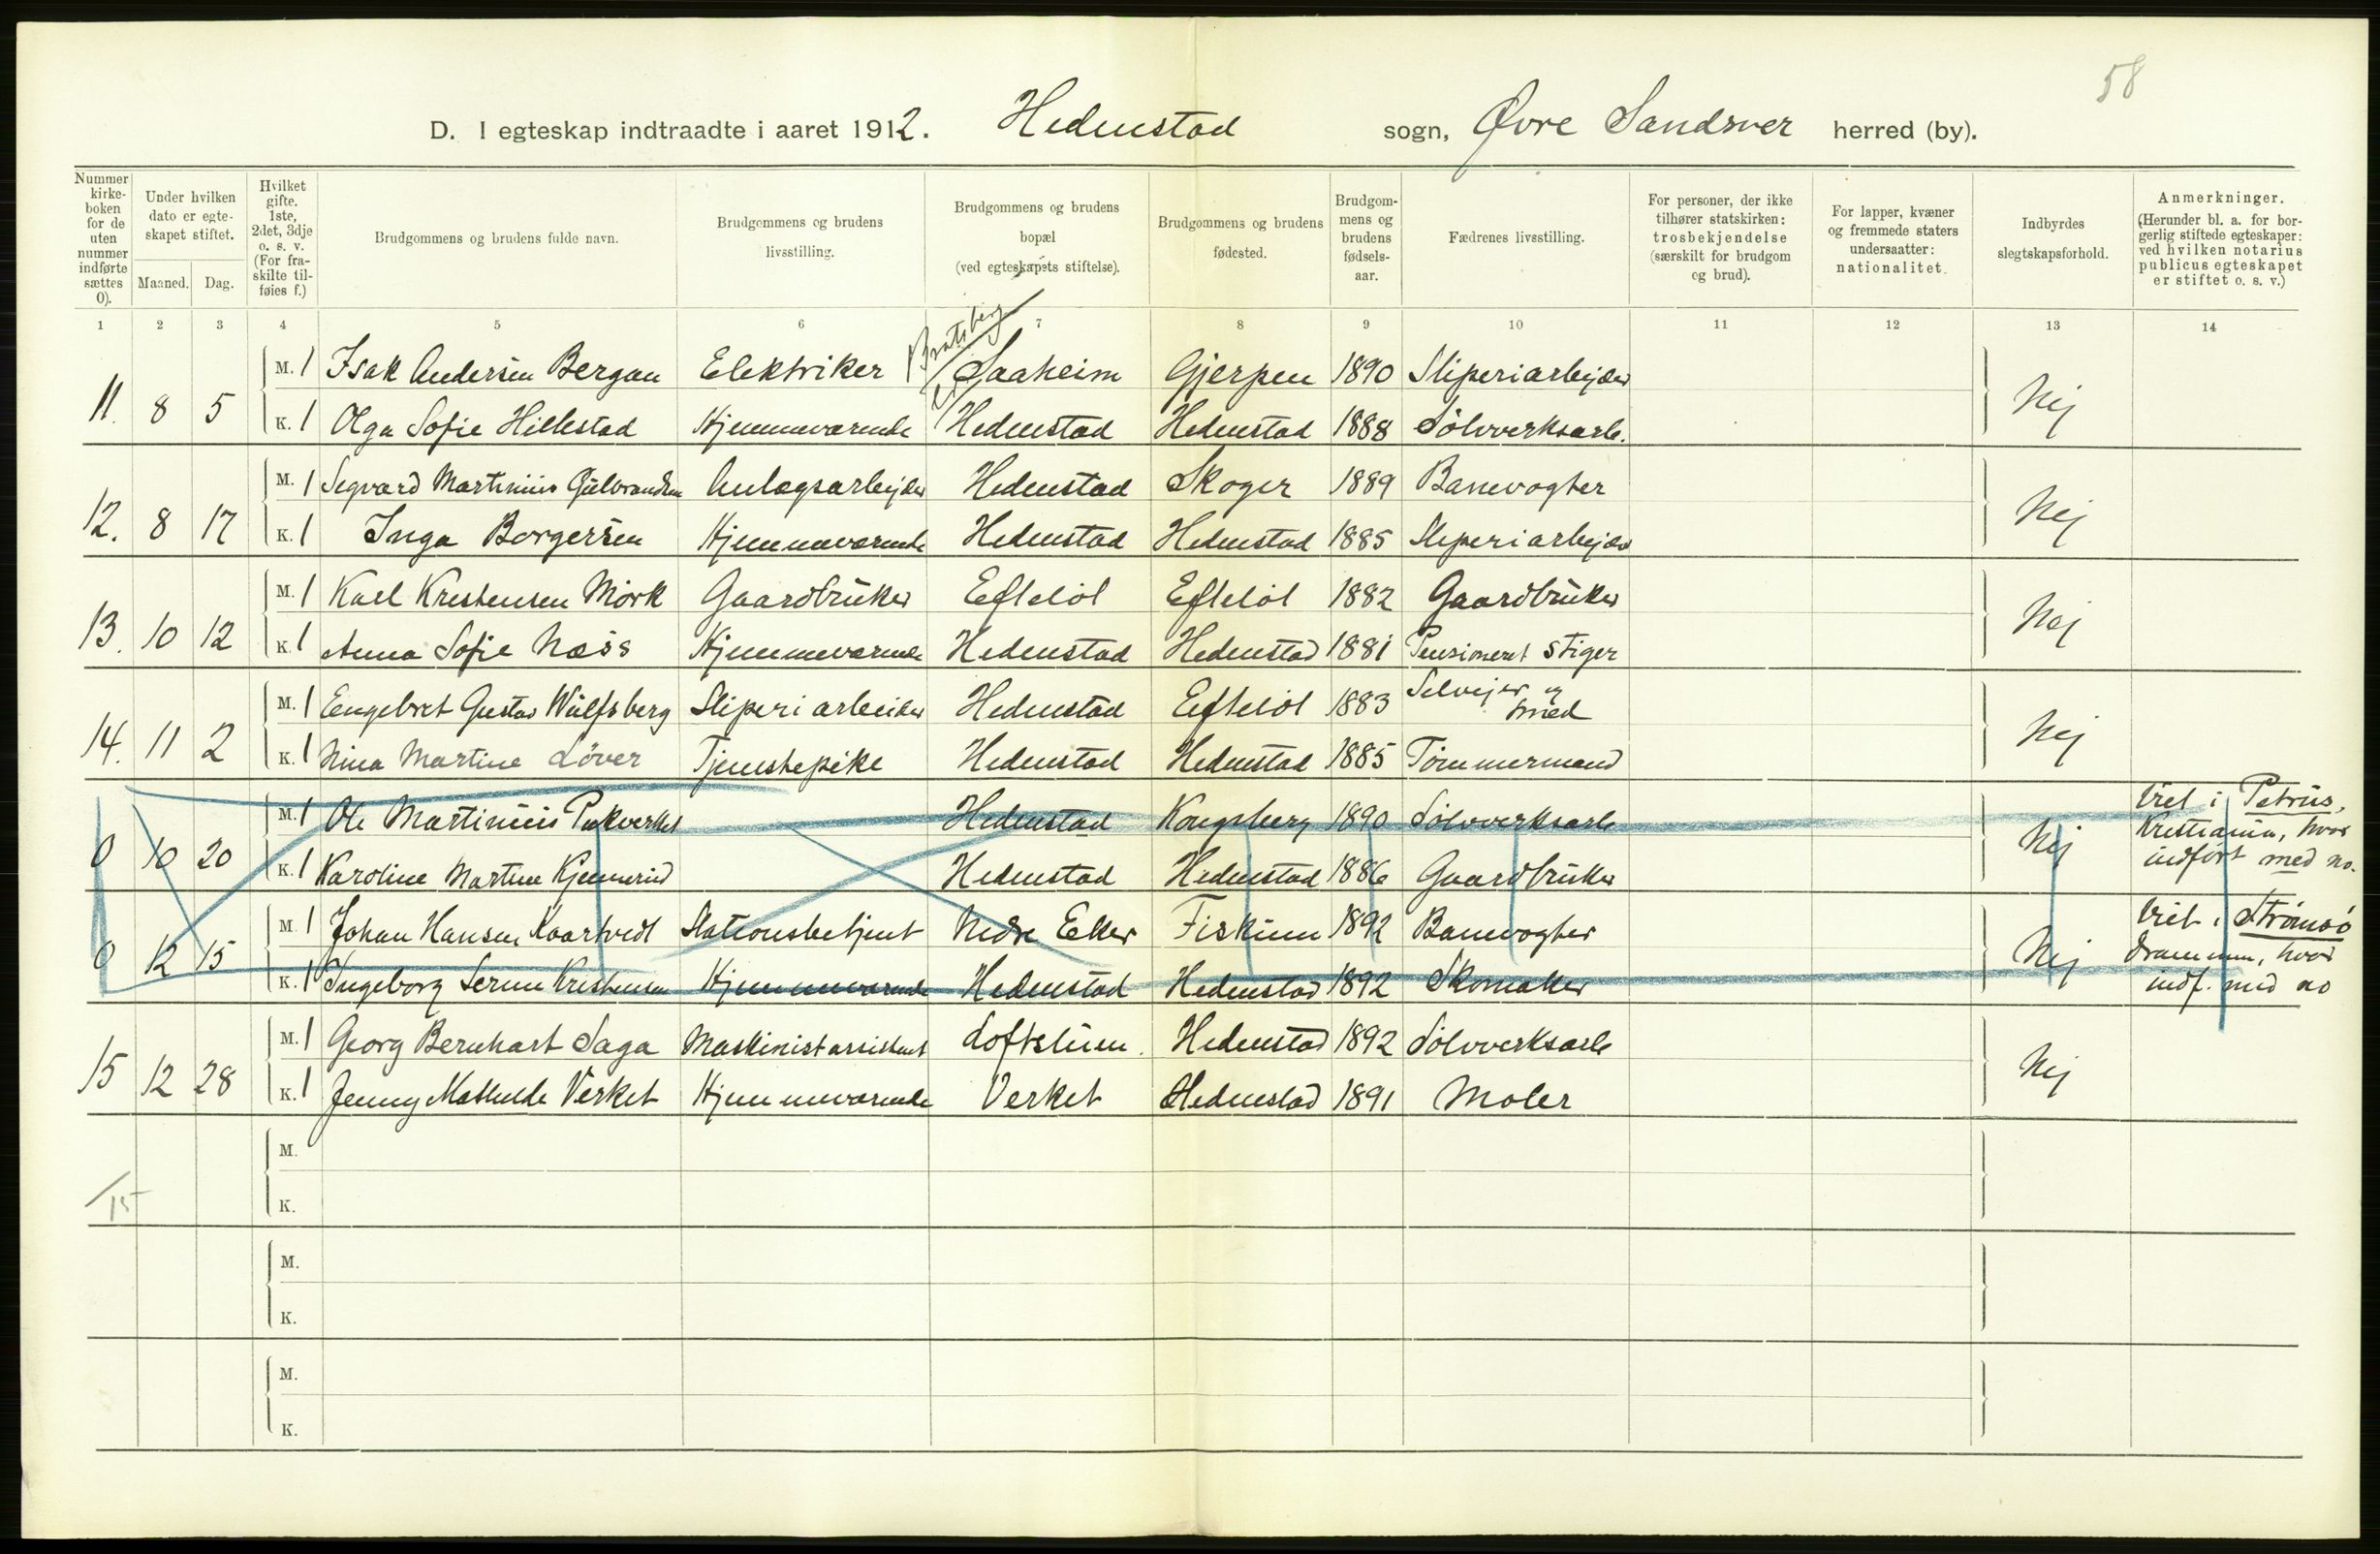 58
D. I egteskap indtraadte i aaret 1912. Hedenstad sogn, Øvre Sandsver herred (by).
Nummer kirkeboken for de uten nummer indførte sættes 0).
Under hvilken dato er egteskapet stiftet.
Maaned. Dag.
Hvilket gifte. 1ste, 2det, 3dje o. s. v. (For fraskilte tilføies f.)
Brudgommens og brudens fulde navn.
Brudgommens og brudens livsstilling.
Brudgommens og brudens bopæl (ved egteskapets stiftelse).
Brudgommens og brudens fødested.
Brudgommens og brudens fødselsaar.
Fædrenes livsstilling.
For personer, der ikke tilhører statskirken: trosbekjendelse (særskilt for brudgom og brud).
For lapper, kvæner og fremmede staters undersaatter: nationalitet.
Indbyrdes slegtskapsforhold.
Anmerkninger. (Herunder bl. a. for borgerlig stiftede egteskaper: ved hvilken notarius publicus egteskapet er stiftet o. s. v.)
1 2 3 4 5 6 7 8 9 10 11 12 13 14
Bratsberg
M. 1 Isak Andersen Bergan Elektriker Saaheim Gjerpen 1890 Sliperiarbejder
11. 8 5 K. 1 Olga Sofie Hillestad Hjemmeværende Hedenstad Hedenstad 1888 Sølvverksarb. Nej
M. 1 Segvard Martinius Gulbrandsen Anlægsarbejder Hedenstad Skoger 1889 Banevogter
12. 8 17 K. 1 Inga Borgersen Hjemmeværende Hedenstad Hedenstad 1885 Sliperiarbejder Nej
M. 1 Karl Kristensen Mørk Gaardbruker Efteløt Efteløt 1882 Gaardbruker
13. 10 12 K. 1 Anna Sofie Næss Hjemmeværende Hedenstad Hedenstad 1881 Pensioneret Stiger Nej
M. 1 Engebret Gustav Wulfsberg Sliperiarbeider Hedenstad Efteløt 1883 Selvejer og Smed
14. 11 2 K. 1 Nina Martine Løver Tjenestepike Hedenstad Hedenstad 1885 Tømmermand Nej
M. 1 Ole Martinius Pukverket Hedenstad Kongsberg 1890 Sølvverksarb Viet i Petrus,
Kristiania, hvor
0 10 20 K. 1 Karoline Martine Kjennerud Hedenstad Hedenstad 1886 Gaardbruker Nej indført med no.
M. 1 Johan Hansen Kaartvedt Stationsbetjent Nedre Eker Fiskum 1892 Banevogter Viet i Strømsø
Drammen, hvor
0 12 15 K. 1 Ingeborg Serine Kristensen Hjemmeværende Hedenstad Hedenstad 1892 Skomaker Nej indf. med no
M. 1 Georg Bernhart Saga Maskinistassistent Loftstuen. Hedenstad 1892 Sølvverksarb
15 12 28 K. 1 Jenny Mathilde Verket Hjemmeværende Verket Hedenstad 1891 Maler Nej
M.
K.
15
M.
K.
M.
K.